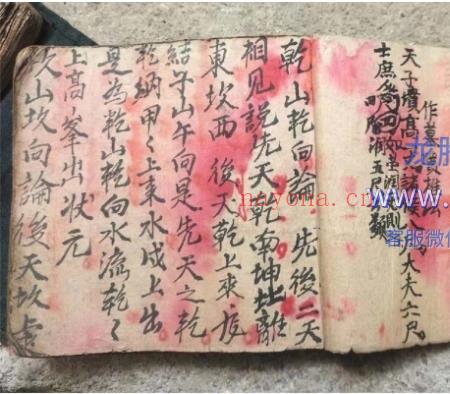 天子墳高
諸侯八
大夫六尺
士庶
乾山乾向論 先後二天
相見説先天乾南坤北離
東坎西後天乾上來
結子山午向是先天之乾
乾納甲〻上來水戌上出
是為乾山乾向水流乾〻
上高峯出狀元
坎山坎向論後天坎
nayona.cn
客服微信